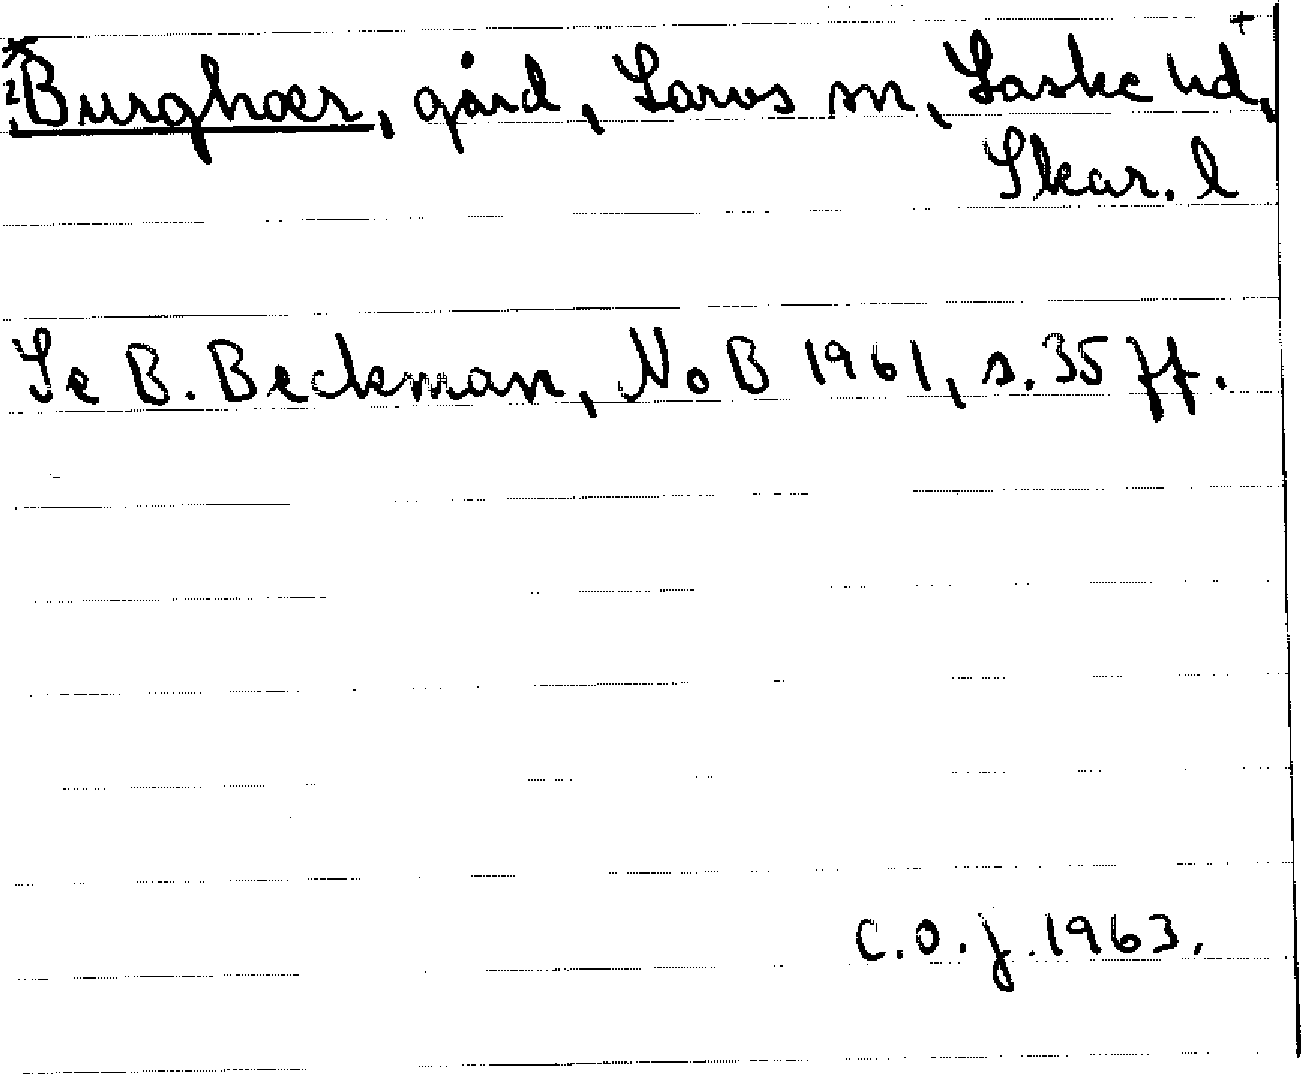 +
Burghær, gård, Larvs sn, Laske hd,
Skar. l
Se B. Beckman, NoB 1961, s. 35 ff.
C.O.J. 1963.